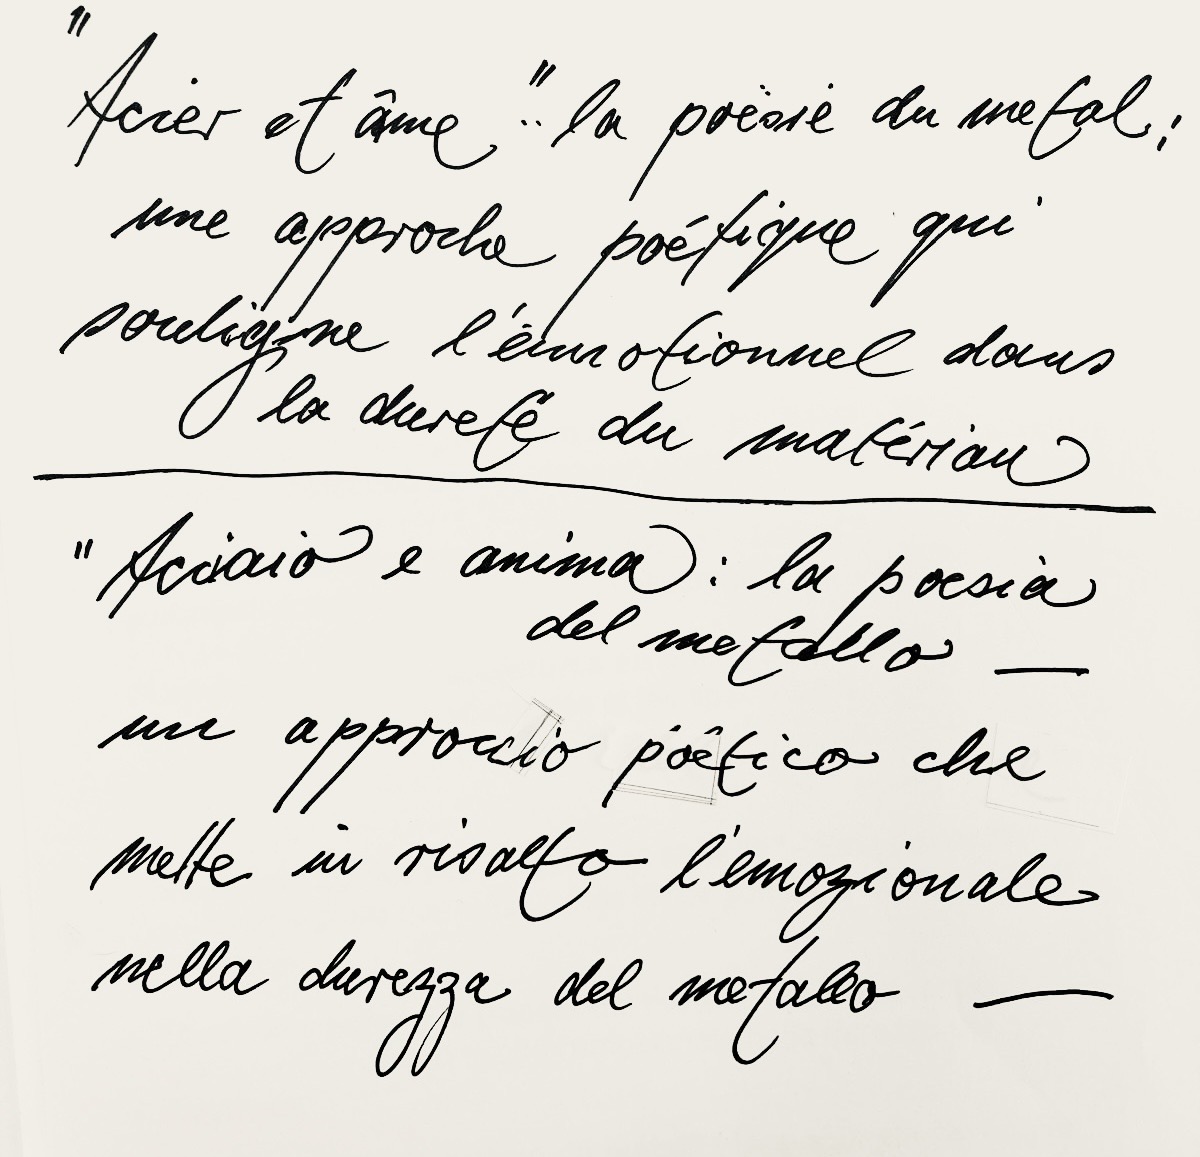 "Acier et âme": la poèsie du metal;
une approche poétique qui
souligne l'émotionnel dans
la dureté du matériau
"Acciaio e anima: la poesia
del metallo —
un approccio poëtico che
mette in risalto l'emozionale
nella durezza del metallo —